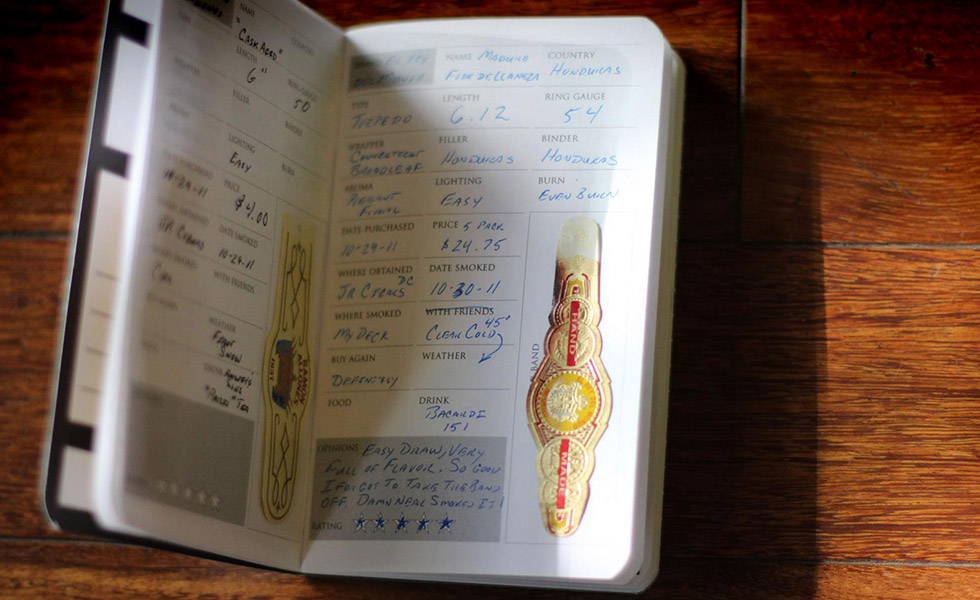 NAME
COUNTRY
"CASK AGED"
LENGTH
RING GAUGE
6"
50
FILLER
BINDER
LIGHTING
BURN
EASY
PRICE
10-29-11
$4.00
DATE SMOKED
JR CIGARS
10-29-11
WITH FRIENDS
CAR
WEATHER
SNOW
TEA
NAME MADURO
COUNTRY
FLOR DE LLANEZA
HONDURAS
TYPE
LENGTH
RING GAUGE
TORPEDO
6.12
54
WRAPPER
FILLER
BINDER
CONNECTICUT
BROADLEAF
HONDURAS
HONDURAS
AROMA
LIGHTING
BURN
EASY
EVEN BURN
DATE PURCHASED
PRICE 5 PACK
10-29-11
$24.75
WHERE OBTAINED
DATE SMOKED
JR CIGARS DC
10-30-11
WHERE SMOKED
WITH FRIENDS
MY DECK
CLEAR COLD 45°
BUY AGAIN
WEATHER
DEFINITLY
FOOD
DRINK
BACARDI
151
OPINIONS EASY DRAW, VERY
FULL OF FLAVOR. SO GOOD
I FORGOT TO TAKE THE BAND
OFF. DAMN NEAR SMOKED IT!
RATING
BAND
HAND
MADE